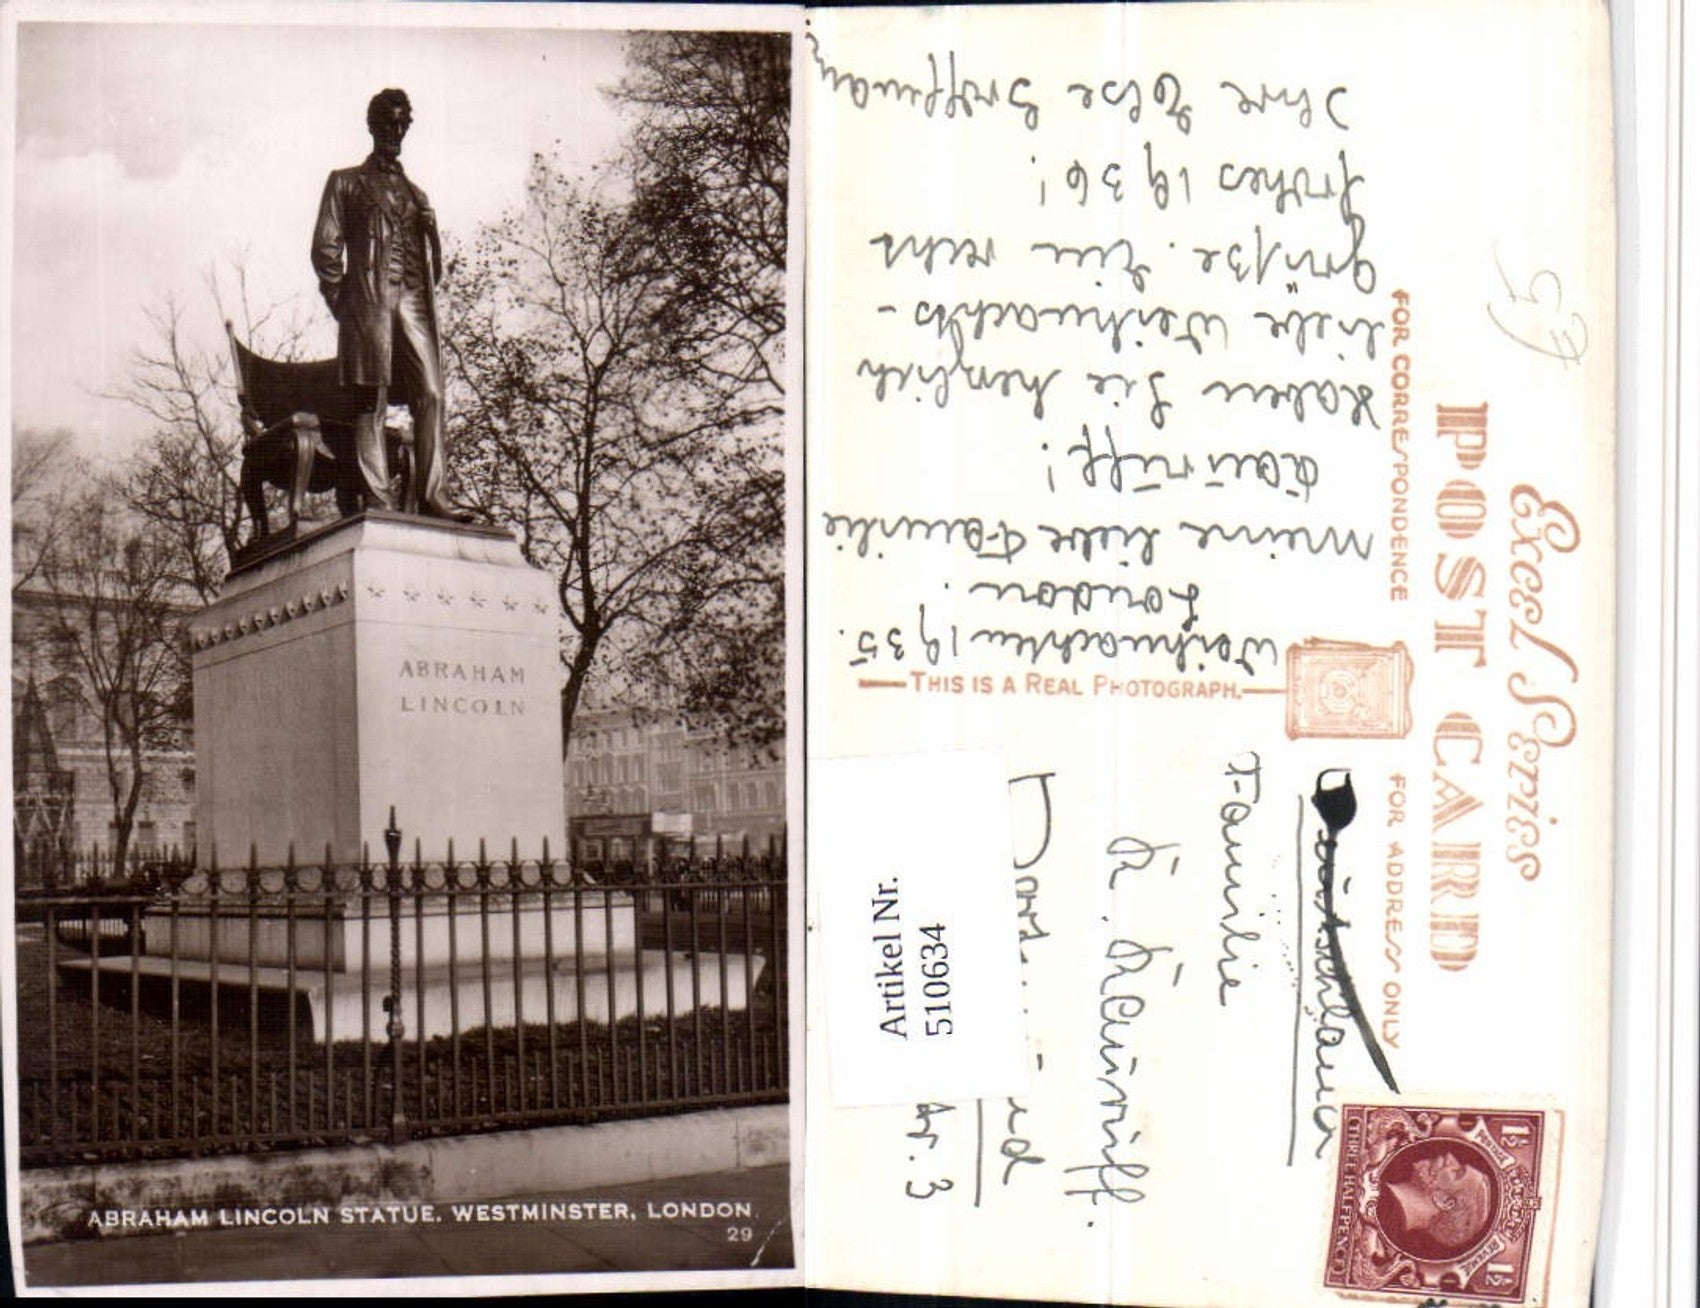 ABRAHAM
LINCOLN
ABRAHAM LINCOLN STATUE. WESTMINSTER, LONDON.
29
Excel Series
POST CARD
FOR CORRESPONDENCE
FOR ADDRESS ONLY
THIS IS A REAL PHOTOGRAPH.
Weihnachten 1935.
London.
Meine liebe Familie
Haben Sie herzlich
liebe Weihnachts-
grüsse. Ein recht
frohes 1936!
Ihre Else
Familie
Nr. 3
Artikel Nr.
510634
5
POSTAGE
REVENUE
1½
1½
THREE HALFPENCE